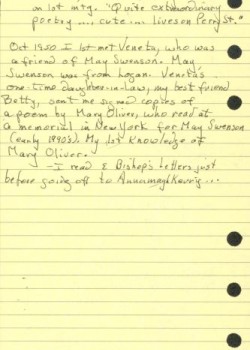 on 1st mtg. "Quite extraordinary
poetry..., cute... lives on Perry St."
Oct 1950 I 1st met Veneta, who was
a friend of May Swenson. May
Swenson was from Logan. Veneta's
one-time daughter-in-law, my best friend
Betty, sent me signed copies of
a poem by Mary Oliver, who read at
a memorial in New York for May Swenson
(early 1990s). My 1st knowledge of
Mary Oliver.
- I read E Bishop's Letters just
before going off to